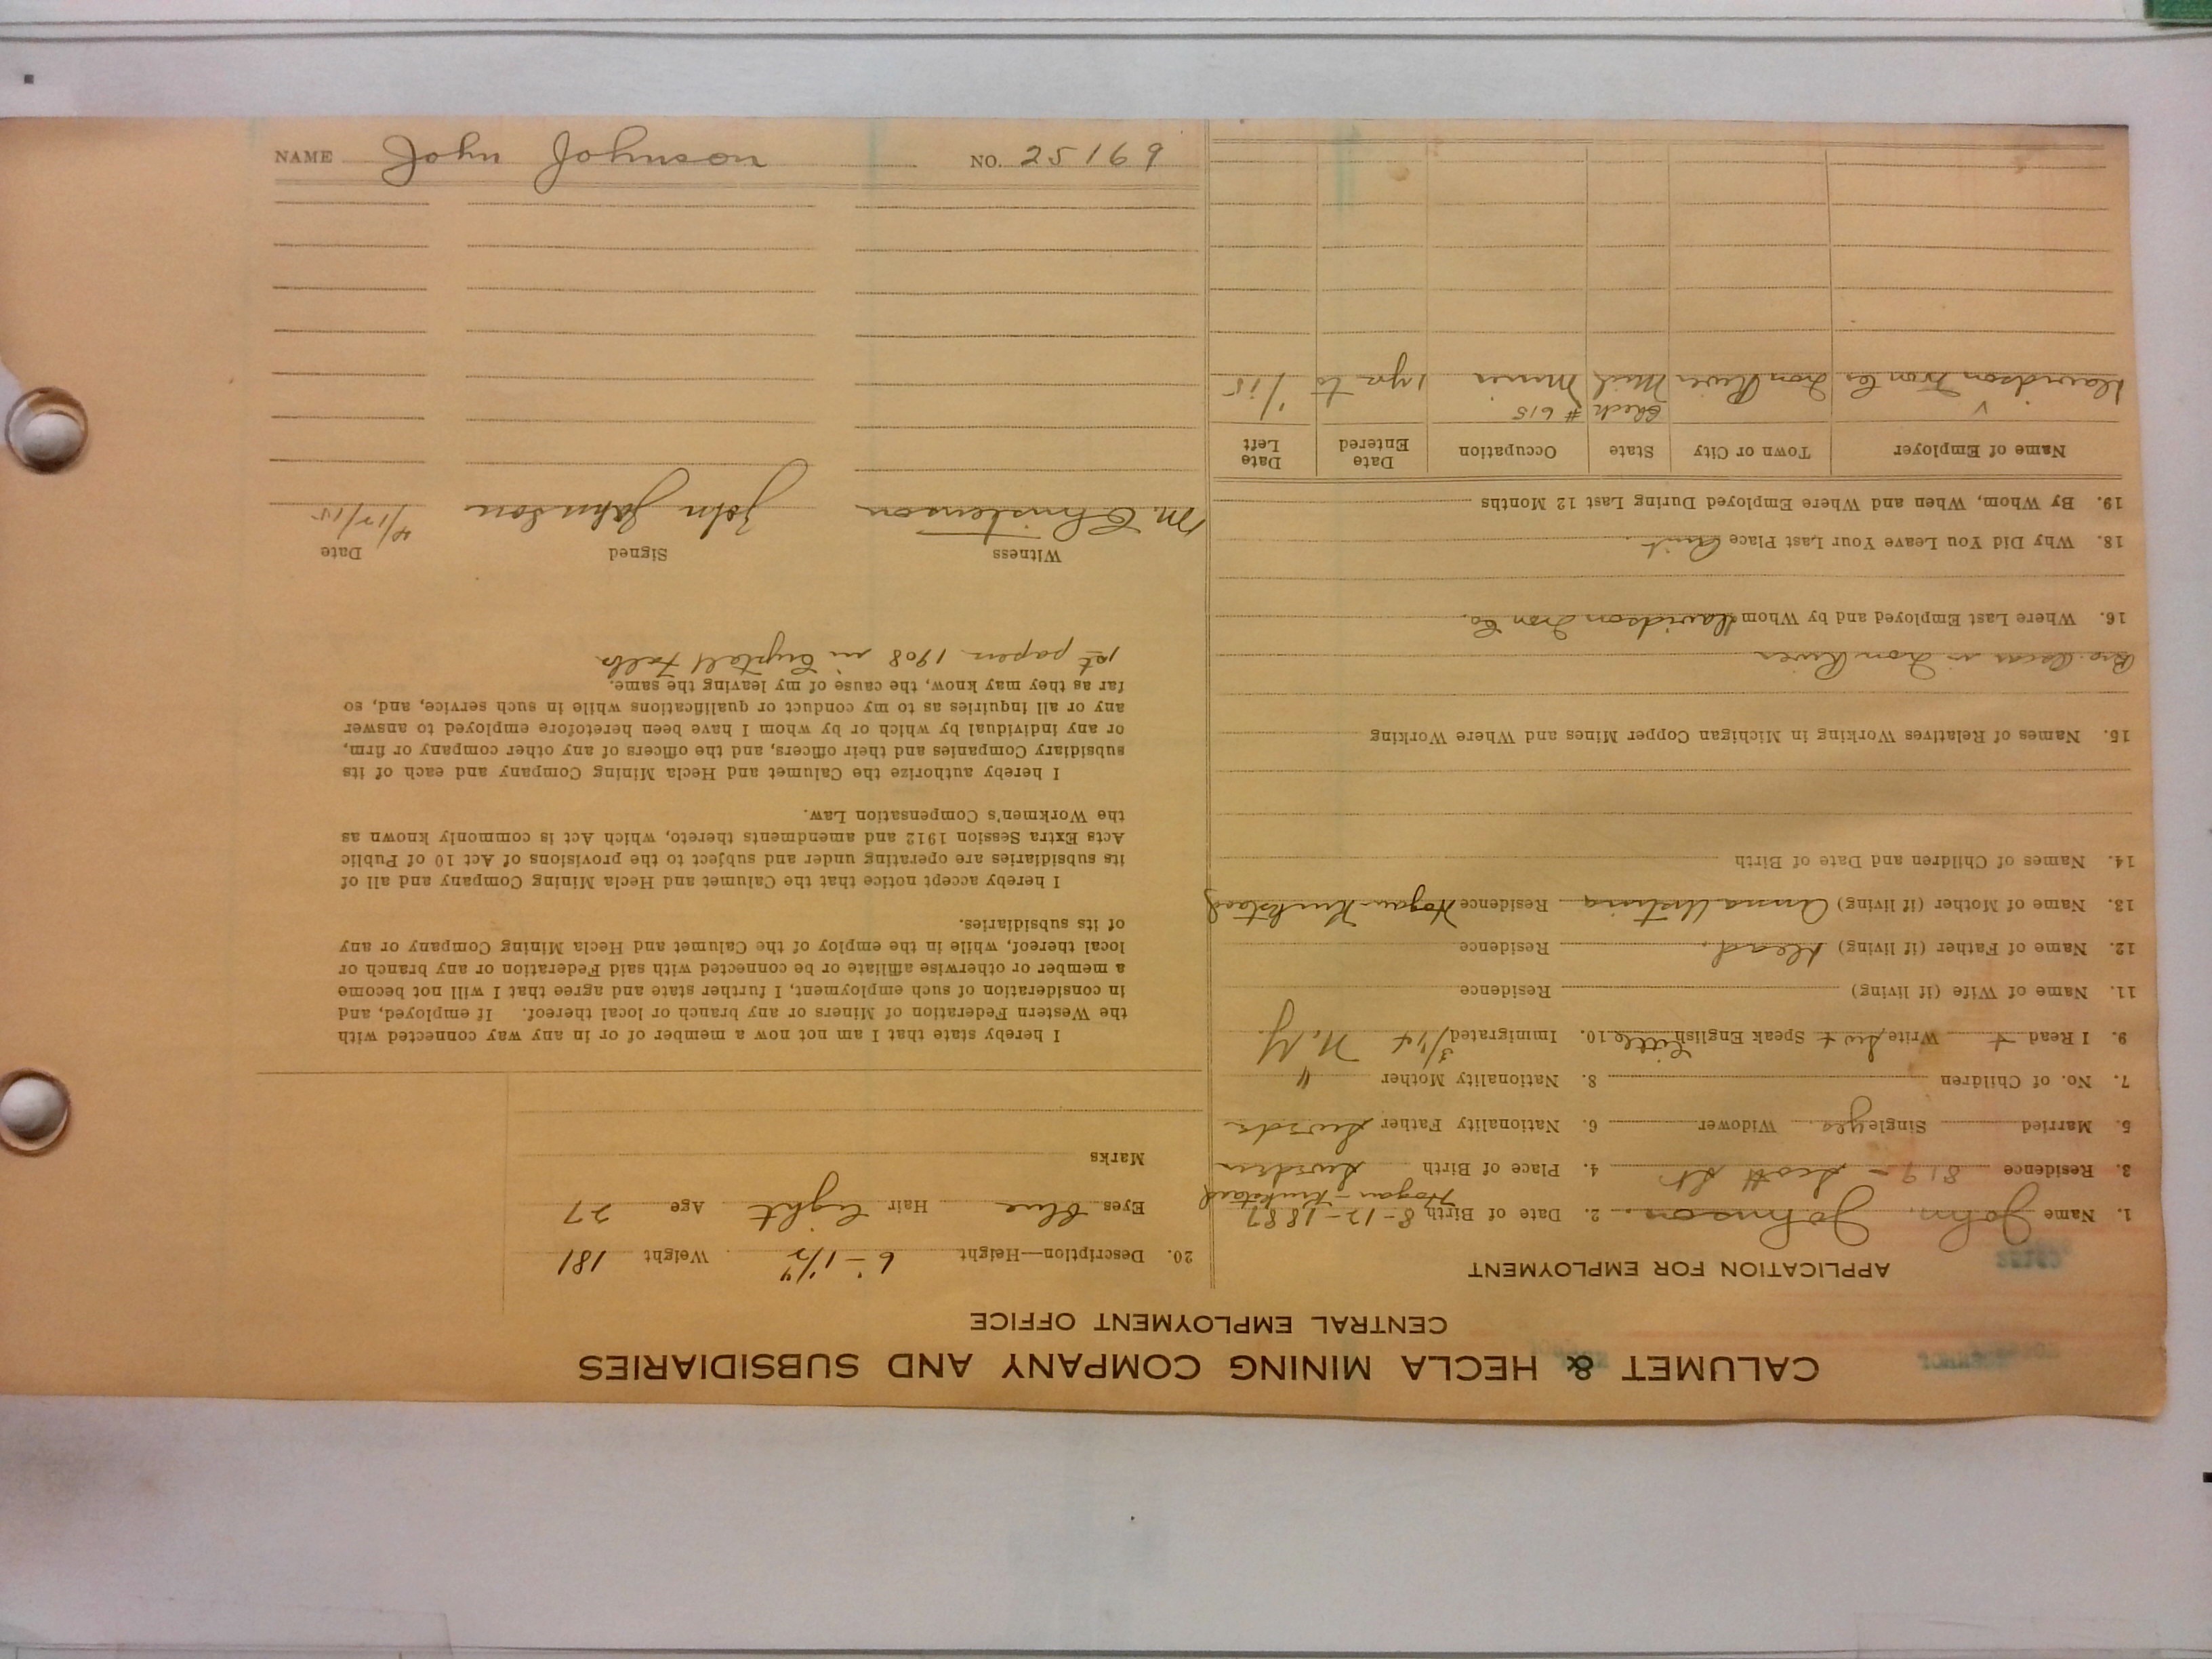 CALUMET & HECLA MINING COMPANY AND SUBSIDIARIES
CENTRAL EMPLOYMENT OFFICE
APPLICATION FOR EMPLOYMENT
1. Name John Johnson. 2. Date of Birth 8-12-1887
3. Residence 819 - Scott St 4. Place of Birth Sweden
5. Married Single yes Widower 6. Nationality Father Swede
7. No. of Children 8. Nationality Mother "
9. I Read + Write Sw + Speak English Little 10. Immigrated 3/14 N.Y.
11. Name of Wife (if living) Residence
12. Name of Father (if living) Dead. Residence
13. Name of Mother (if living) Anna Residence
14. Names of Children and Date of Birth
15. Names of Relatives Working in Michigan Copper Mines and Where Working
Bro. Oscar in Iron River
16. Where Last Employed and by Whom Davidson Iron Co.
18. Why Did You Leave Your Last Place Quit.
19. By Whom, When and Where Employed During Last 12 Months
Name of Employer Town or City State Occupation Date Entered Date Left
Check # 615
Davidson Iron Co Iron River Mich Miner 1 yr to 1/15
20. Description—Height 6'-1 1/4" Weight 181
Eyes Blue Hair Light Age 27
Marks
I hereby state that I am not now a member of or in any way connected with
the Western Federation of Miners or any branch or local thereof. If employed, and
in consideration of such employment, I further state and agree that I will not become
a member or otherwise affiliate or be connected with said Federation or any branch or
local thereof, while in the employ of the Calumet and Hecla Mining Company or any
of its subsidiaries.
I hereby accept notice that the Calumet and Hecla Mining Company and all of
its subsidiaries are operating under and subject to the provisions of Act 10 of Public
Acts Extra Session 1912 and amendments thereto, which Act is commonly known as
the Workmen's Compensation Law.
I hereby authorize the Calumet and Hecla Mining Company and each of its
subsidiary Companies and their officers, and the officers of any other company or firm,
or any individual by which or by whom I have been heretofore employed to answer
any or all inquiries as to my conduct or qualifications while in such service, and, so
far as they may know, the cause of my leaving the same.
1st papers 1908 in Crystal Falls
Witness Signed Date
M. Christenson John Johnson 4/17/15
NAME John Johnson NO. 25169